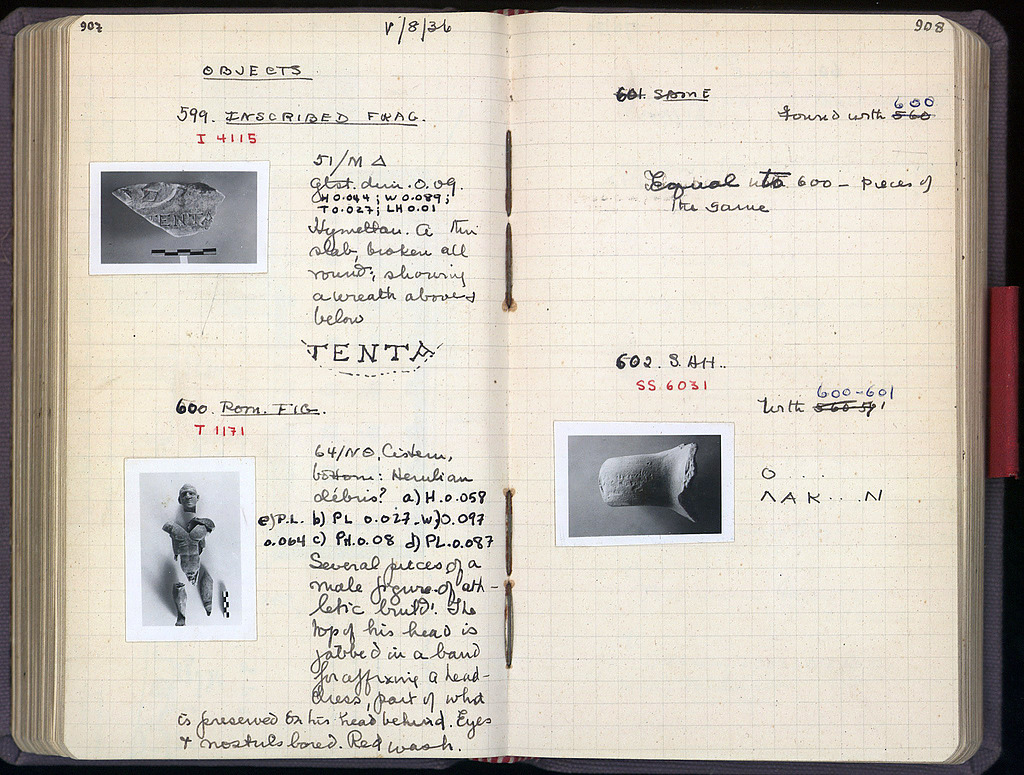 907
V/8/36
OBJECTS
599. INSCRIBED FRAG.
I 4115
51/M Δ
Gtst. dim. 0.09.
H 0.044; W 0.089;
T 0.027; LH 0.01
Hymettan. A thin
slab, broken all
round; showing
a wreath above &
below
TENTA
TENTA
600. Rom. FIG.
T 1171
64/ΝΘ, Cistern,
bottom: Herulian
débris? a) H. 0.058
e) P.L. b) PL 0.027-W) 0.097
0.064 c) PH. 0.08 d) PL. 0.087
Several pieces of a
male figure of ath-
letic build. The
top of his head is
jabbed in a band
for affixing a head-
dress, part of which
is preserved on his head behind. Eyes
& nostrils bored. Red wash.
908
601. SAME
600
Found with 560
Equal to 600 - pieces of
the same
602. S. AH..
SS 6031
600-601
With 560-591
O ....
ΛΑΚ...Ν